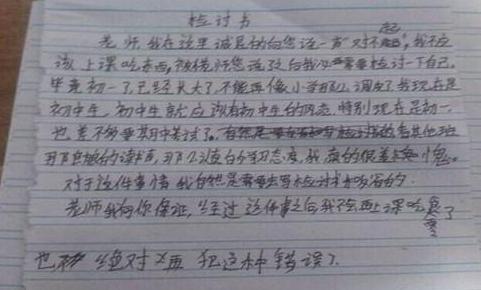 检讨书
老师,我在这里诚恳的向您说一声"对不起",我不应
该上课吃东西,被老师您说没自我 需要检讨一下自己,
毕竟初一了,已经长大了,不能再像小学那么调皮了我现在是
初中生,初中生就应该有初中生的 态,特别现在是初一,
也差不多要期中考试了。看其他班
那 的读书声,那 的学习态度,我真的很惭愧。
对于这件事情我自然是 写检讨书 的
老师我向你保证,经过这件事之后我不会再上课吃东西了
也 绝对不再犯这种错误了